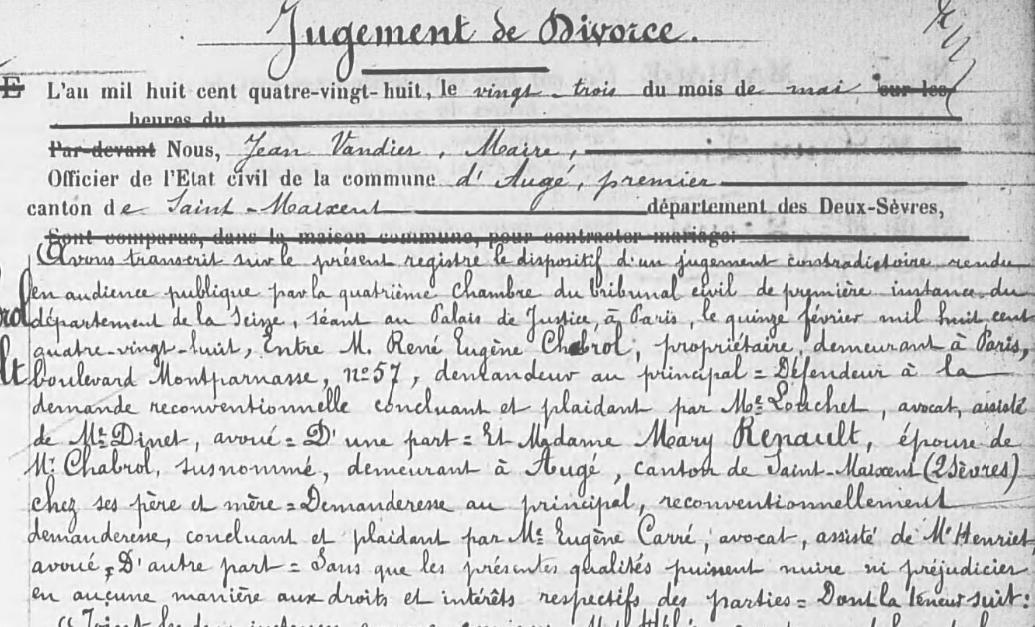 Jugement de Divorce.
L'an mil huit cent quatre-vingt-huit, le vingt-trois du mois de mai sur les
heures du
Par-devant Nous, Jean Vandier, Maire,
Officier de l'Etat civil de la commune d'Augé, premier
canton de Saint-Maixent département des Deux-Sèvres,
Sont comparus, dans la maison commune, pour contracter mariage:
Avons transcrit sur le présent registre le dispositif d'un jugement contradictoire rendu
en audience publique par la quatrième chambre du tribunal civil de première instance du
département de la Seine, séant au Palais de Justice, à Paris, le quinze février mil huit cent
quatre-vingt-huit, Entre M. René Eugène Chabrol, propriétaire, demeurant à Paris,
boulevard Montparnasse, n° 57, demandeur au principal = Défendeur à la
demande reconventionnelle concluant et plaidant par Me Louchet, avocat, assisté
de Me Dinet, avoué = D'une part = Et Madame Mary Renault, épouse de
Mr Chabrol, susnommé, demeurant à Augé, canton de Saint-Maixent (2 Sèvres)
chez ses père et mère = Demanderesse au principal, reconventionnellement
demanderesse, concluant et plaidant par Me Eugène Carré, avocat, assisté de Me Henriet
avoué, D'autre part = Sans que les présentes qualités puissent nuire ni préjudicier
en aucune manière aux droits et intérêts respectifs des parties = Dont la teneur suit: